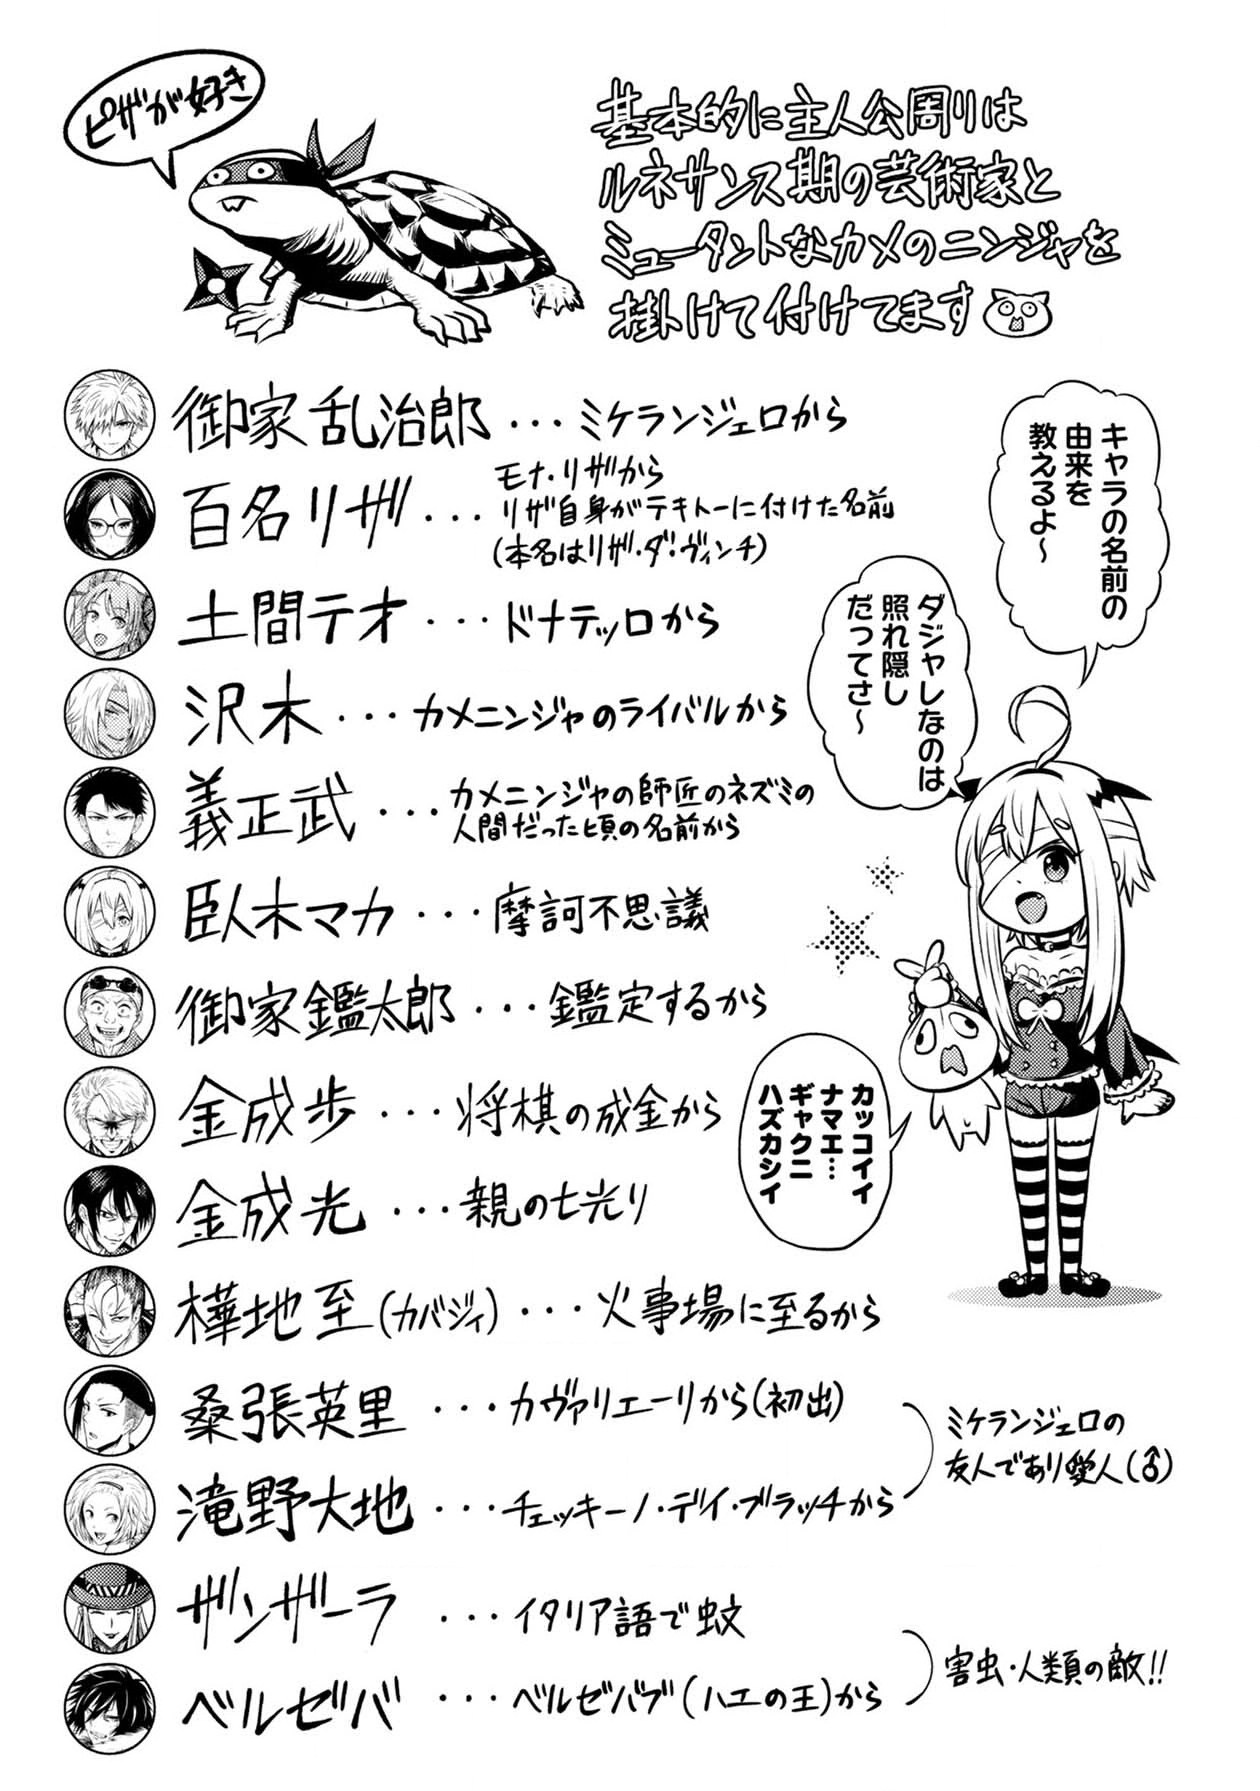 ピザが好き
基本的に主人公周りは
ルネサンス期の芸術家と
ミュータントなカメのニンジャを
掛けて付けてます
キャラの名前の
由来を
教えるよ～
ダジャレなのは
照れ隠し
だってさ～
御家乱治郎・・・ミケランジェロから
百名リザ・・・モナ・リザから
リザ自身がテキトーに付けた名前
(本名はリザ・ダ・ヴィンチ)
土間テオ・・・ドナテッロから
沢木・・・カメニンジャのライバルから
義正武・・・カメニンジャの師匠のネズミの
人間だった頃の名前から
臥木マカ・・・摩訶不思議
御家鑑太郎・・・鑑定するから
金成歩・・・将棋の成金から
金成光・・・親の七光り
カッコイイ
ナマエ…
ギャクニ
ハズカシイ
樺地至(カバジイ)・・・火事場に至るから
桑張英里・・・カヴァリエーリから(初出)
滝野大地・・・チェッキーノ・デイ・ブラッチから
ミケランジェロの
友人であり愛人(♂)
ザンザーラ・・・イタリア語で蚊
ベルゼバ・・・ベルゼバブ(ハエの王)から
害虫・人類の敵!!